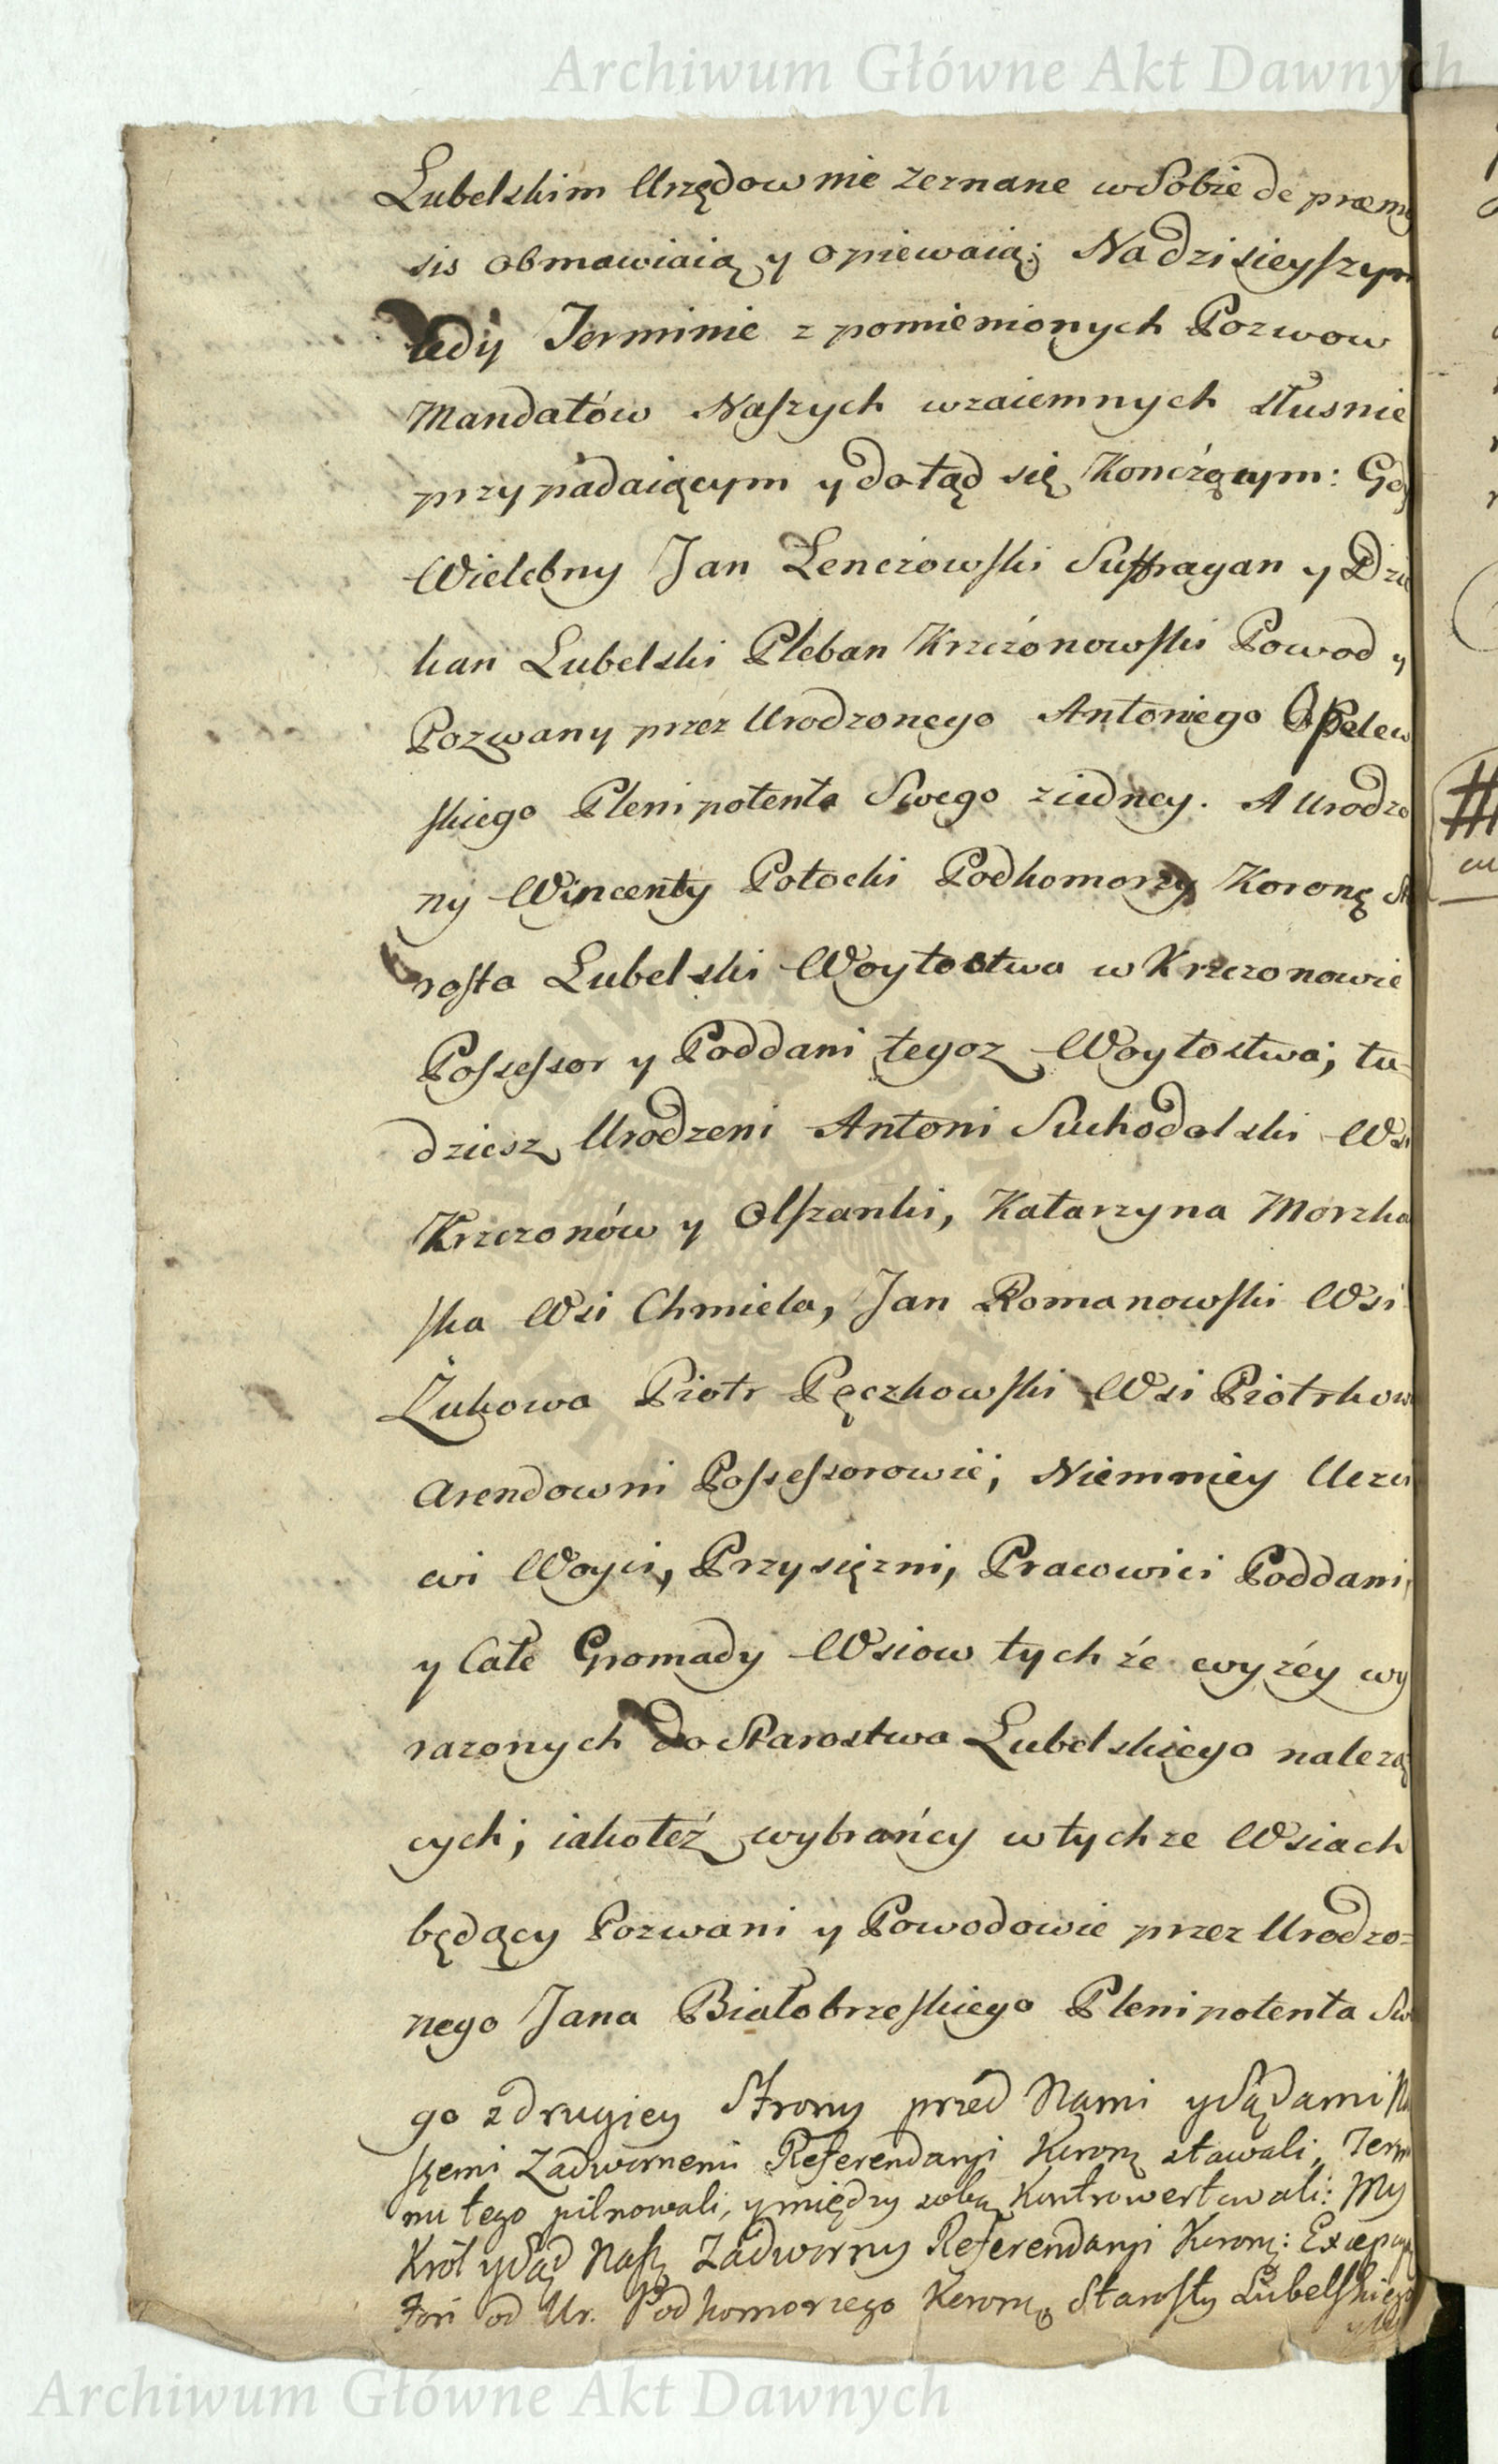 Archiwum Główne Akt Dawnych
Lubelskim Urzędownie zeznane w Sobie de præmis
sis obmawiaią y opiewaią; Na dzisieyszym
tedy Terminie z pomienionych Pozwow
Mandatów Naszych wzaiemnych słusnie
przypadaiącym y dotąd się Konczącym: Gdy
Wielebny Jan Lenczowski Suffragan y Dzie
kan Lubelski Pleban Krzczónowski Powod y
Pozwany przez Urodzonego Antoniego Opelew
skiego Plenipotenta Swego ziedney. A Urodzo
ny Wincenty Potocki Podkomorzy Koronę Sta
rosta Lubelski Woytostwa w Krzczonowie
Possessor y Poddani tegoz Woytostwa; tu-
dziesz Urodzeni Antoni Suchodolski Wsi
Krzczonów y Olszanki, Katarzyna Morzko
ska Wsi Chmiela, Jan Romanowski Wsi
Żukowa Piotr Pęczkowski Wsi Piotrkowa
arendowni Possessorowie; Niemniey Uczci
wi Woyci, Przysięzni, Pracowici Poddani,
y Całe Gromady Wsiow tychże wyżéy wy
razonych do Starostwa Lubelskiego nalezą
cych; iakoteż wybrańcy w tychze Wsiach
będący Pozwani y Powodowie przez Urodzo=
nego Jana Białobrzeskiego Plenipotenta Swe
go z drugiey Strony przed Nami y Sądami Na
szemi Zadwornemi Referendaryi Koronę stawali, Termi
nu tego pilnowali, y między sobą Kontrowertowali: My
Król y Sąd Nasz Zadworny Referendaryi Koronę: Excepcyą
Fori od Ur. Podkomorzego Koronę Starosty Lubelskiego
Archiwum Główne Akt Dawnych